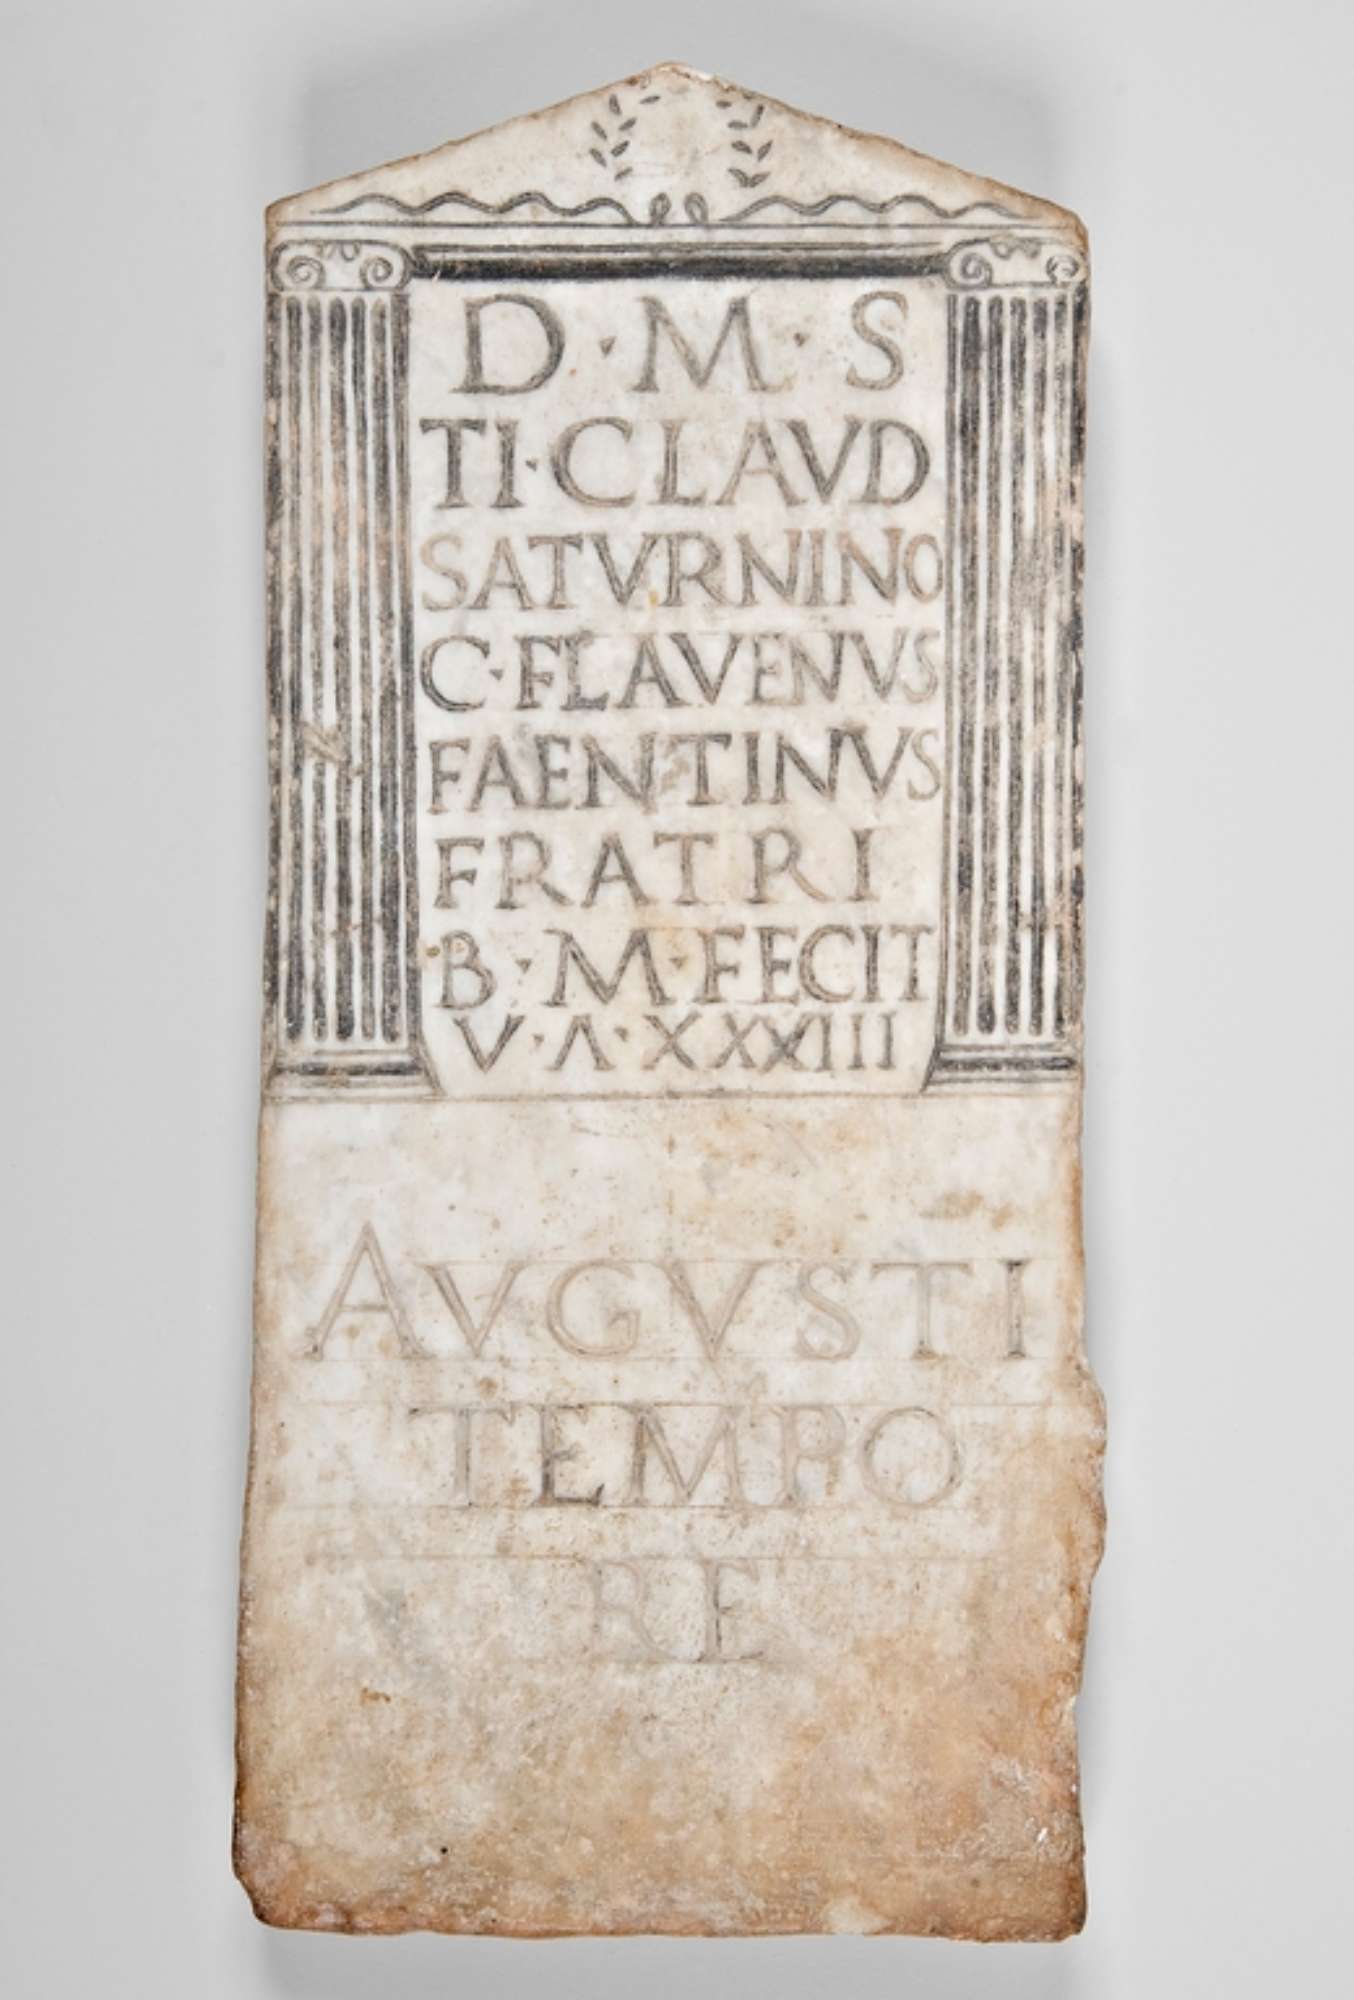 D·M·S
TI·CLAVD
SATVRNINO
C·FLAVENVS
FAENTINVS
FRATRI
B·M·FECIT
V·A·XXXIII
AVGVSTI
TEMPO
RE